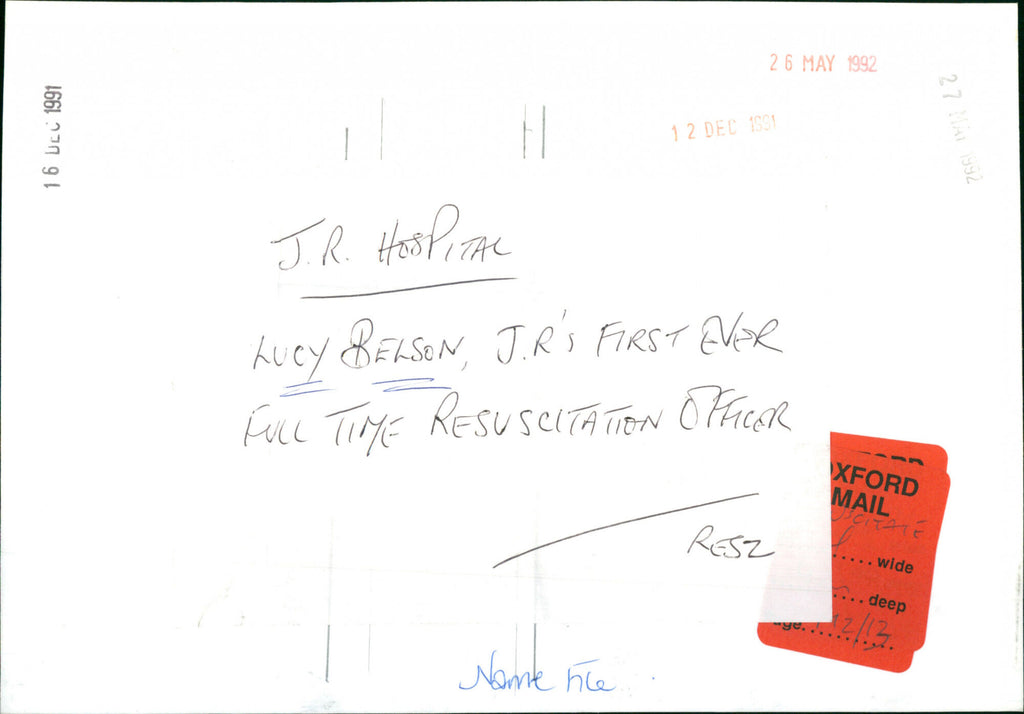 26 MAY 1992
16 DEC 1991
27 MAY 1992
12 DEC 1991
J.R. HOSPITAL
LUCY BELSON, J.R's FIRST EVER
FULL TIME RESUSCITATION OFFICER
RESZ
OXFORD
MAIL
..... wide
.... deep
age..........
12/12
Name File